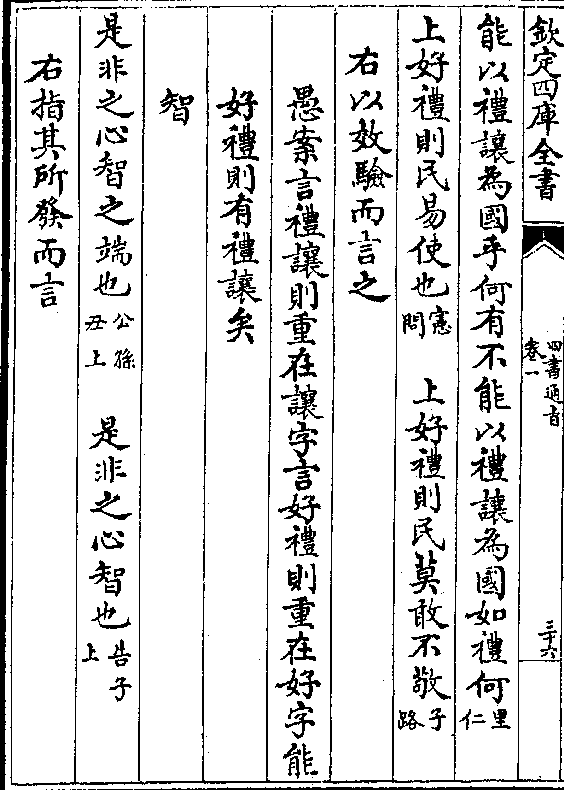 欽定四庫全書
四書通旨
卷一
三十六
能以禮讓為國乎何有不能以禮讓為國如禮何里仁
上好禮則民易使也憲問 上好禮則民莫敢不敬子路
右以效驗而言之
愚案言禮讓則重在讓字言好禮則重在好字能
好禮則有禮讓矣
智
是非之心智之端也公孫丑上 是非之心智也告子上
右指其所發而言